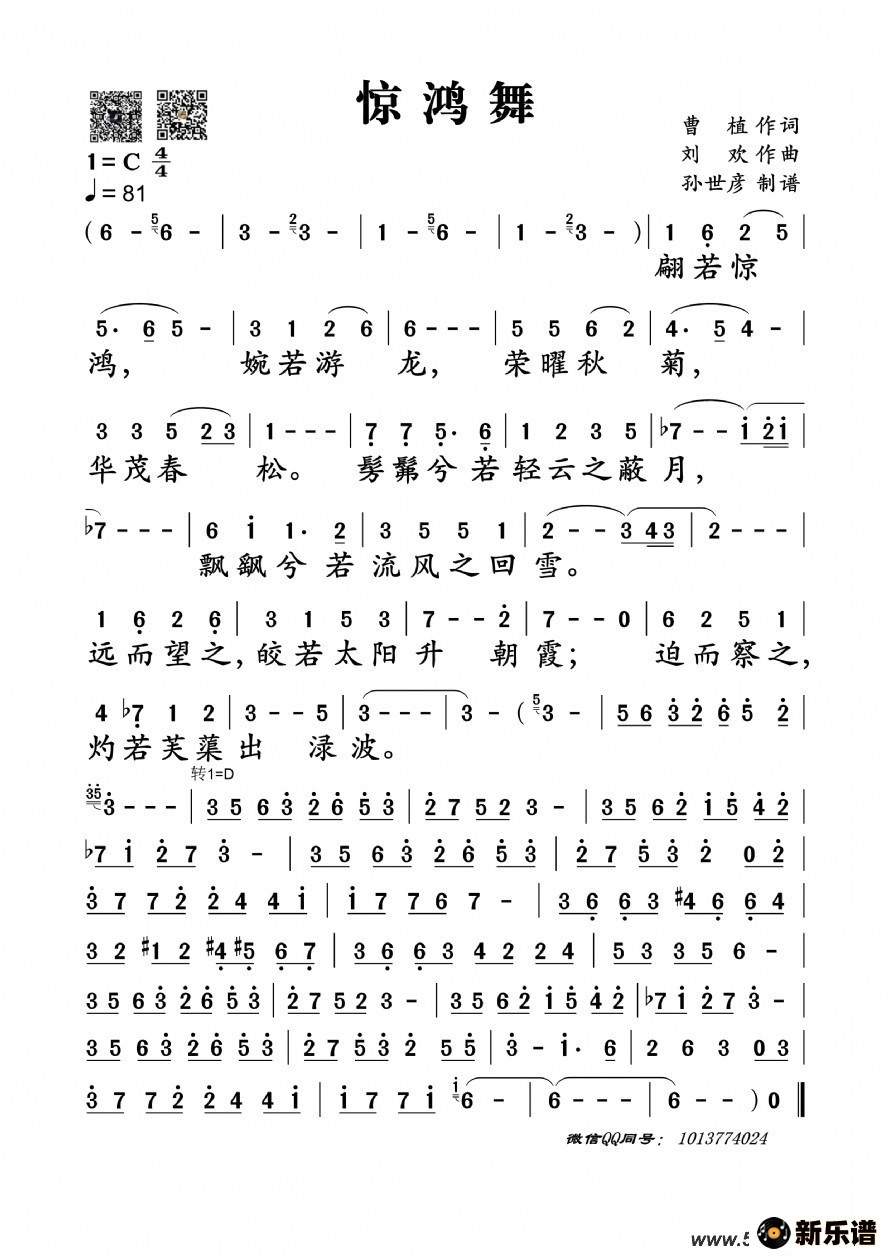 惊鸿舞
曹 植 作 词
刘 欢 作 曲
孙世彦 制 谱
1=C 4/4
♩=81
( 6 - 5 6 - | 3 - 2 3 - | 1 - 5 6 - | 1 - 2 3 - ) | 1 6 2 5 |
翩若惊
5· 6 5 - | 3 1 2 6 | 6 - - - | 5 5 6 2 | 4· 5 4 - |
鸿， 婉若游 龙， 荣曜秋 菊，
3 3 5 2 3 | 1 - - - | 7 7 5· 6 | 1 2 3 5 | ♭7 - - 1 2 1 |
华茂春 松。 髣髴兮若轻云之蔽月，
♭7 - - - | 6 1 1· 2 | 3 5 5 1 | 2 - - 3 4 3 | 2 - - - |
飘飖兮若流风之回雪。
1 6 2 6 | 3 1 5 3 | 7 - - 2 | 7 - - 0 | 6 2 5 1 |
远而望之，皎若太阳升 朝霞； 迫而察之，
4 ♭7 1 2 | 3 - - 5 | 3 - - - | 3 - ( 5 3 - | 5 6 3 2 6 5 2 |
灼若芙蕖出 渌波。
转1=D
35 3 - - - | 3 5 6 3 2 6 5 3 | 2 7 5 2 3 - | 3 5 6 2 1 5 4 2 |
♭7 1 2 7 3 - | 3 5 6 3 2 6 5 3 | 2 7 5 3 2 0 2 |
3 7 7 2 2 4 4 1 | 1 7 7 6 7 - | 3 6 6 3 ♯4 6 6 4 |
3 2 ♯1 2 ♯4 ♯5 6 7 | 3 6 6 3 4 2 2 4 | 5 3 3 5 6 - |
3 5 6 3 2 6 5 3 | 2 7 5 2 3 - | 3 5 6 2 1 5 4 2 | ♭7 1 2 7 3 - |
3 5 6 3 2 6 5 3 | 2 7 5 3 2 5 5 | 3 - 1· 6 | 2 6 3 0 3 |
3 7 7 2 2 4 4 1 | 1 7 7 1 1 6 - | 6 - - - | 6 - - ) 0 ‖
微信QQ同号： 1013774024
www.5
新乐谱